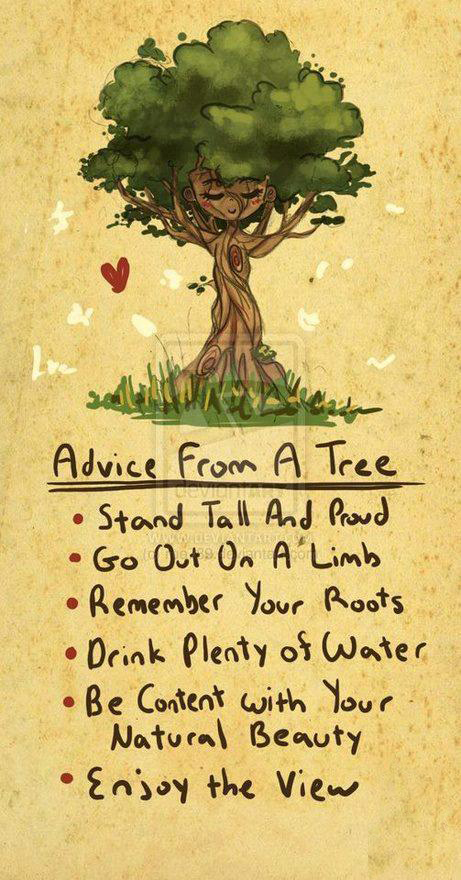 Advice From A Tree
deviantART
• Stand Tall And Proud
WWW.DEVIANTART.COM
• Go Out On A Limb
• Remember Your Roots
• Drink Plenty of Water
• Be Content with Your
Natural Beauty
• Enjoy the View